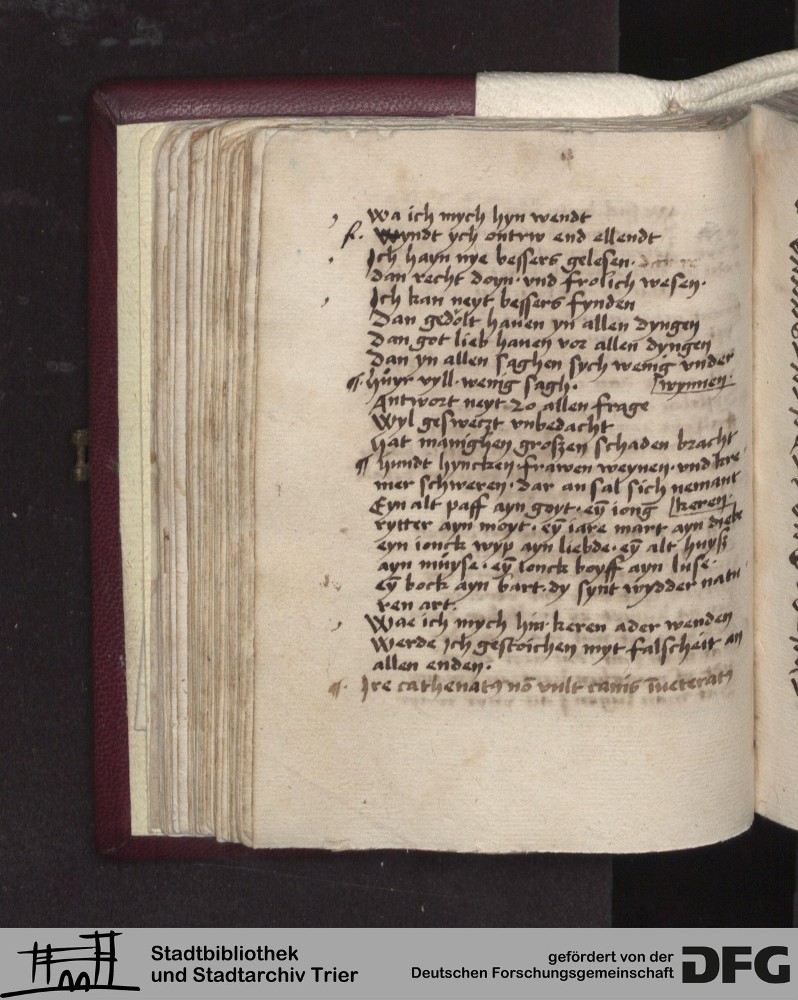 wa ich mych hyn wendt
f. wyndt ych ontrw end ellendt
Ich hayn nye bessers gelesen.
dan recht doyn. vnd frolich wesen.
Ich kan neyt bessers fynden
Dan gedölt hauen yn allen dyngen
Dan got lieb hauen vor allen dyngen
Dan yn allen saghen sych wenig vnder
¶. hüyr vyll. wenig sagh. [wynnen.
Antwort neyt zo allen frage
Wyl gesweczt vnbedacht
Hat manighen groszen schaden bracht
¶ hundt hyncken. frawen weynen. vnd kre
mer schweren. dar an sal sich nemant
Eyn alt paff ayn goyt. eȳ iong [keren.
rytter ayn moyt. eȳ iare mart ayn diebe
eyn ionck wyp ayn liebde. eȳ alt huyß
ayn müyse. eȳ ionck boyff ayn luse.
eȳ bock ayn bart. dy synt wydder natu
ren art.
Wae ich mych hin keren ader wenden
Werde ich gestoichen myt falscheit an
allen enden.
¶. Ire cathenatꝰ nō vult canis īueteratꝰ
Stadtbibliothek
und Stadtarchiv Trier
gefördert von der
Deutschen Forschungsgemeinschaft
DFG